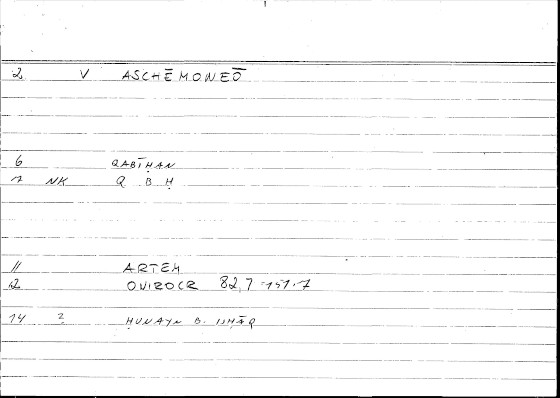 2 V ASCHĒMONEŌ
6 QABĪḤAN
7 NK Q B Ḥ
11 ARTEM
12 ONIROCR 82,7 151.7
14 2 ḤUNAYN B. ISḤĀQ